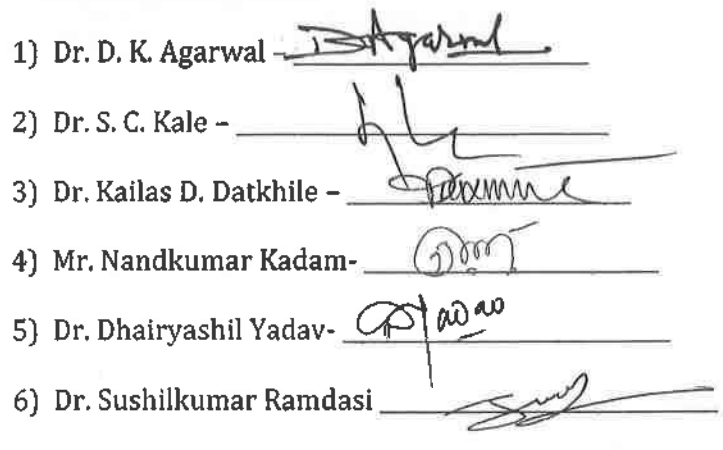 1) Dr. D. K. Agarwal – DAgarwal
2) Dr. S. C. Kale –
3) Dr. Kailas D. Datkhile –
4) Mr. Nandkumar Kadam-
5) Dr. Dhairyashil Yadav-
6) Dr. Sushilkumar Ramdasi